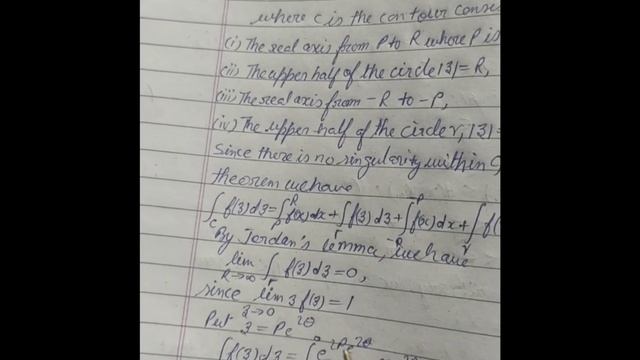 where C is the contour
(i) The real axis from P to R where P is
(ii) The upper half of the circle |3| = R,
(iii) The real axis from -R to -P,
(iv) The upper half of the circle r, |3| =
Since there is no singularity within C,
theorem we have
∫_C f(3)d3 = ∫_P^R f(x)dx + ∫_Γ f(3)d3 + ∫_{-R}^{-P} f(x)dx + ∫_r f(
By Jordan's lemma, we have
lim_{R→∞} ∫_Γ f(3)d3 = 0,
since lim_{3→0} 3 f(3) = 1
Put 3 = Pe^{iθ}
∫ f(3)d3 = ∫ e